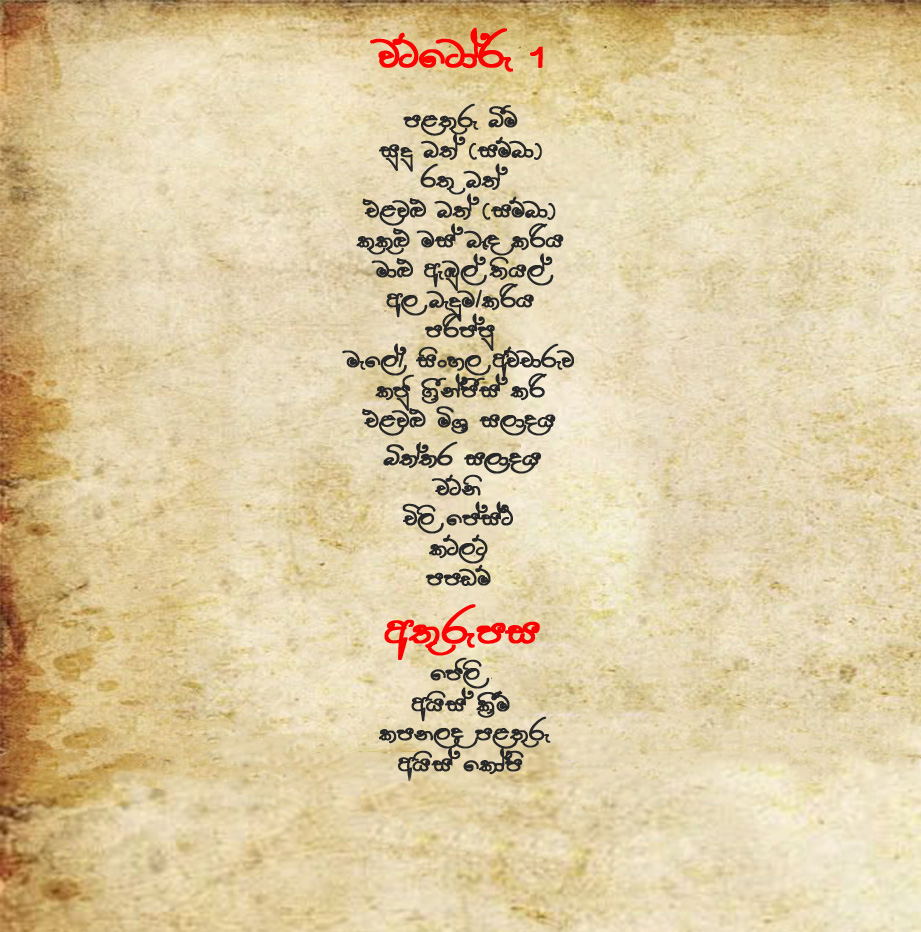 වට්ටෝරු 1
පළතුරු බීම
සුදු බත් (සම්බා)
රතු බත්
එළවළු බත් (සම්බා)
කුකුළු මස් බැද කරිය
මාළු ඇඹුල් තියල්
අල බැදුම/කරිය
පරිප්පු
මැලේ, සිංහල අච්චාරුව
කජු ග්‍රීන්පීස් කරි
එළවළු මිශ්‍ර සලාදය
බිත්තර සලාදය
චට්නි
චිලි පේස්ට්
කට්ලට්
පපඩම්
අතුරුපස
ජේලි
අයිස් ක්‍රීම්
කපනලද පළතුරු
අයිස් කෝපි